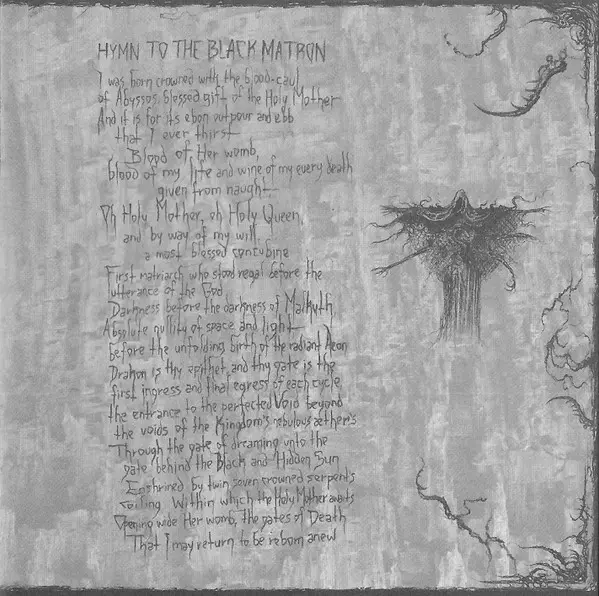 HYMN TO THE BLACK MATRON
I was born crowned with the blood-caul
of Abyssos, blessed gift of the Holy Mother
And it is for its ebon outpour and ebb
that I ever thirst
Blood of Her womb,
blood of my life and wine of my every death
given from naught
Oh Holy Mother, oh Holy Queen,
and by way of my will,
a most blessed concubine
First matriarch who stood regal before the
utterance of the God
Darkness before the darkness of Malkuth,
Absolute nullity of space and light
before the unfolding birth of the radiant Aeon
Drakon is thy epithet, and thy gate is the
first ingress and final egress of each cycle,
the entrance to the perfected Void beyond
the voids of the Kingdom's nebulous aethers
Through the gate of dreaming unto the
gate behind the Black and Hidden Sun
Enshrined by twin seven crowned serpents
coiling Within which the Holy Mother awaits
Opening wide Her womb, the gates of Death
That I may return to be reborn anew